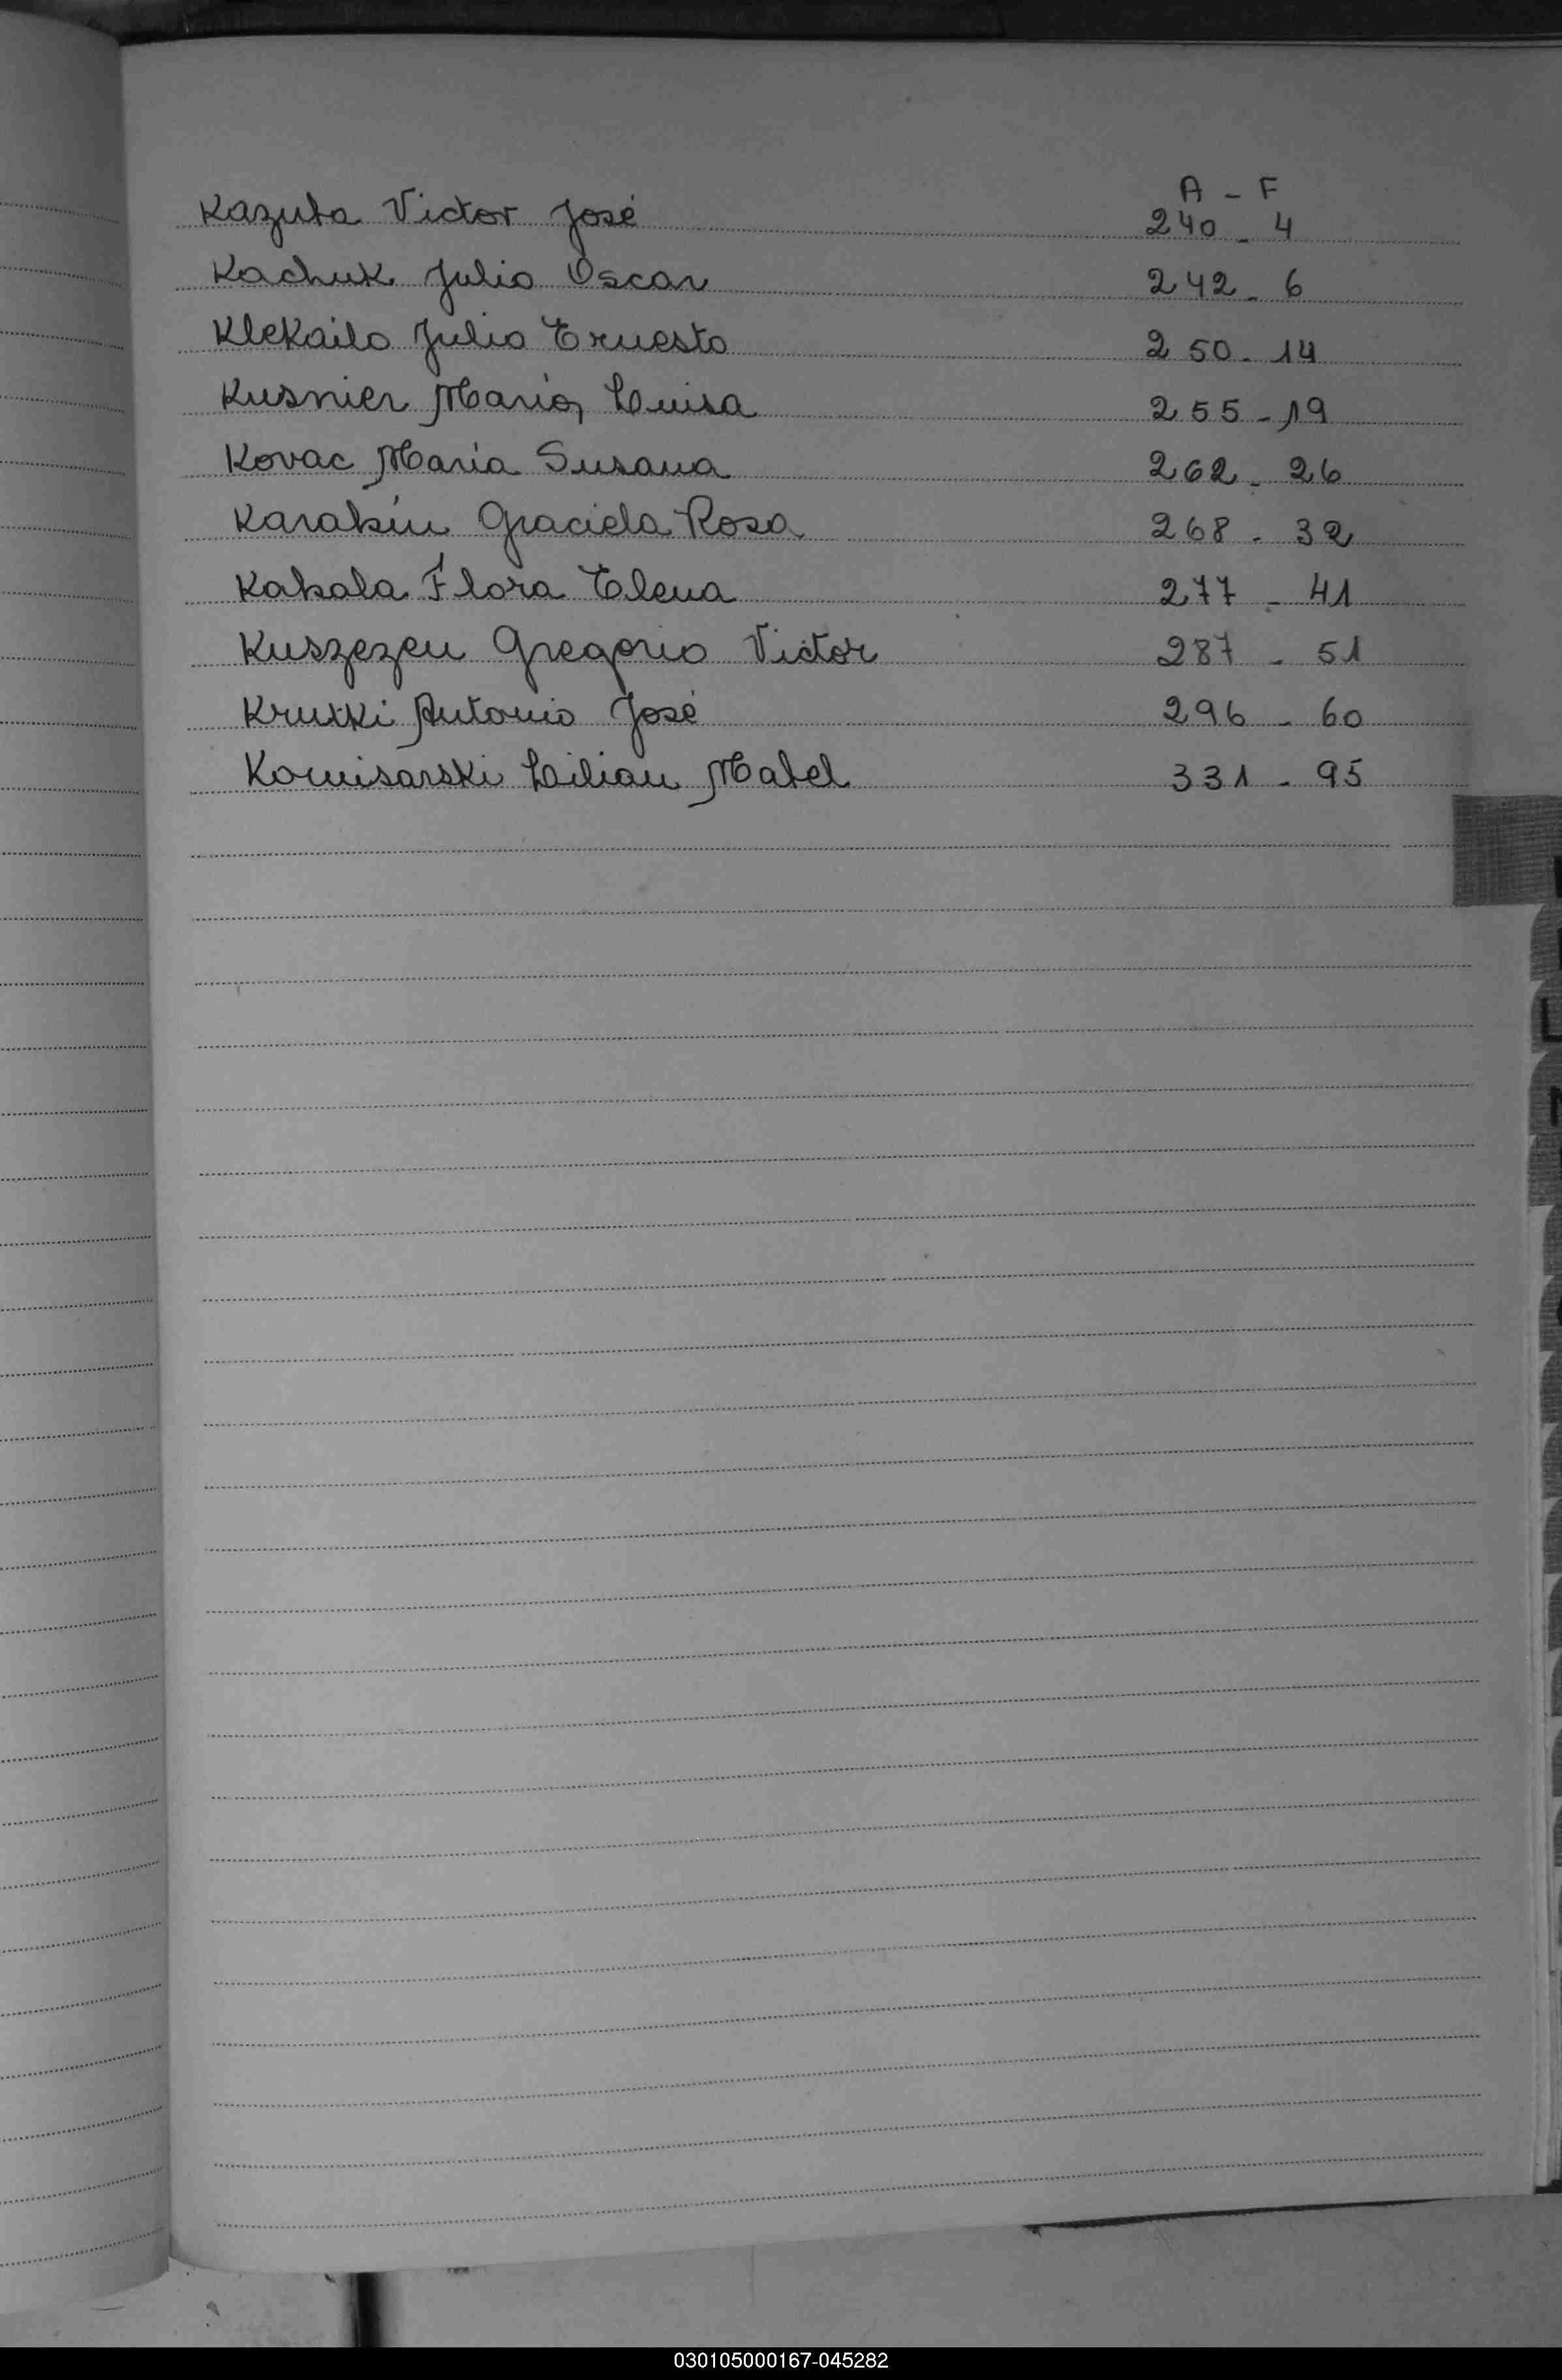 A - F
Kazuba Victor José 240 - 4
Kachuk Julio Oscar 242 - 6
Klekailo Julio Ernesto 250 - 14
Kusnier María Luisa 255 - 19
Kovac María Susana 262 - 26
Karabin Graciela Rosa 268 - 32
Kabala Flora Elena 277 - 41
Kuszezen Gregorio Victor 287 - 51
Krutki Antonio José 296 - 60
Komisarski Lilian Mabel 331 - 95
L
030105000167-045282